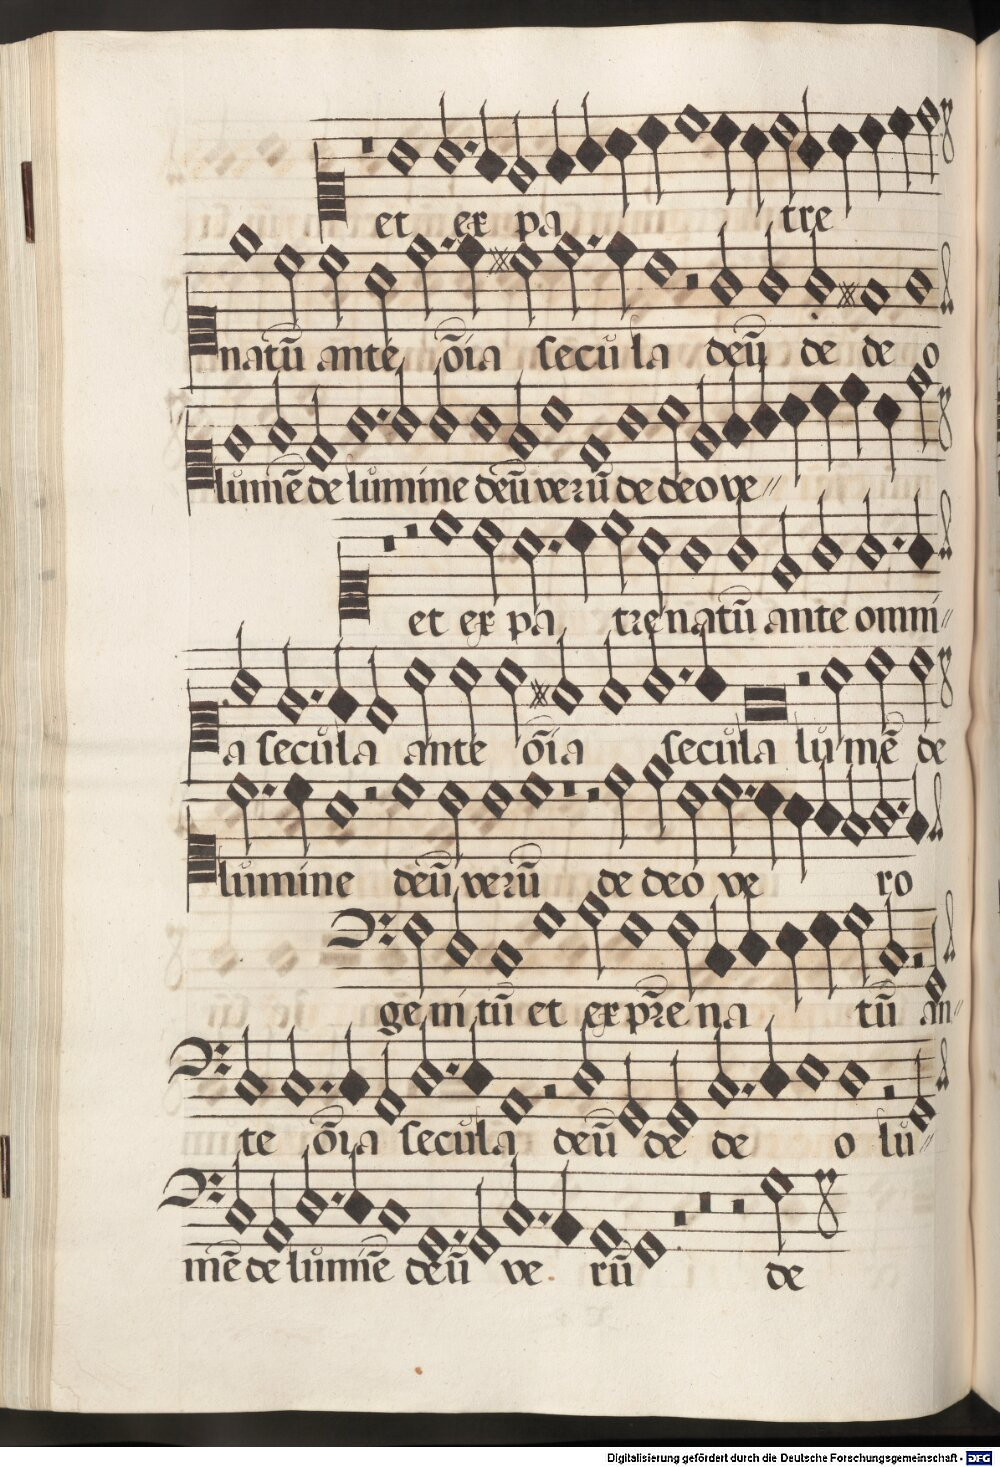 et ex pa tre
natū ante oīa secula deū de de o
lumē de lumine deū verū de deo ve
et ex pa tre natū ante omni
a secula ante oīa secula lumē de
lumine deū verū de deo ve ro
genitū et ex pr̄e na tū an
te oīa secula deū de de o lu
mē de lumiē deū ve rū de
Digitalisierung gefördert durch die Deutsche Forschungsgemeinschaft - DFG